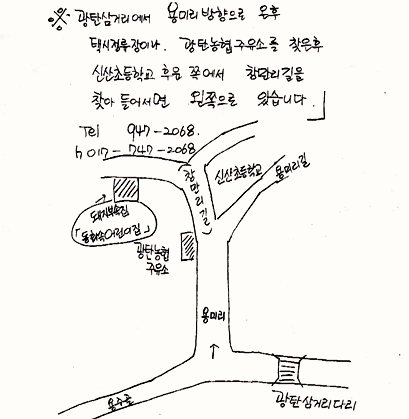 ※ 광탄삼거리에서 용미리 방향으로 온후
택시정류장이나. 광탄농협주유소를 찾은후
신산초등학교 후문 쪽에서 장만리길을
찾아 들어서면 왼쪽으로 있습니다.
Tel 947-2068.
h 017-747-2068
장만리길
신산초등학교
용미리길
돼지부속집
「동화속어린이집」
광탄농협
주유소
용미리
용주골
광탄삼거리다리